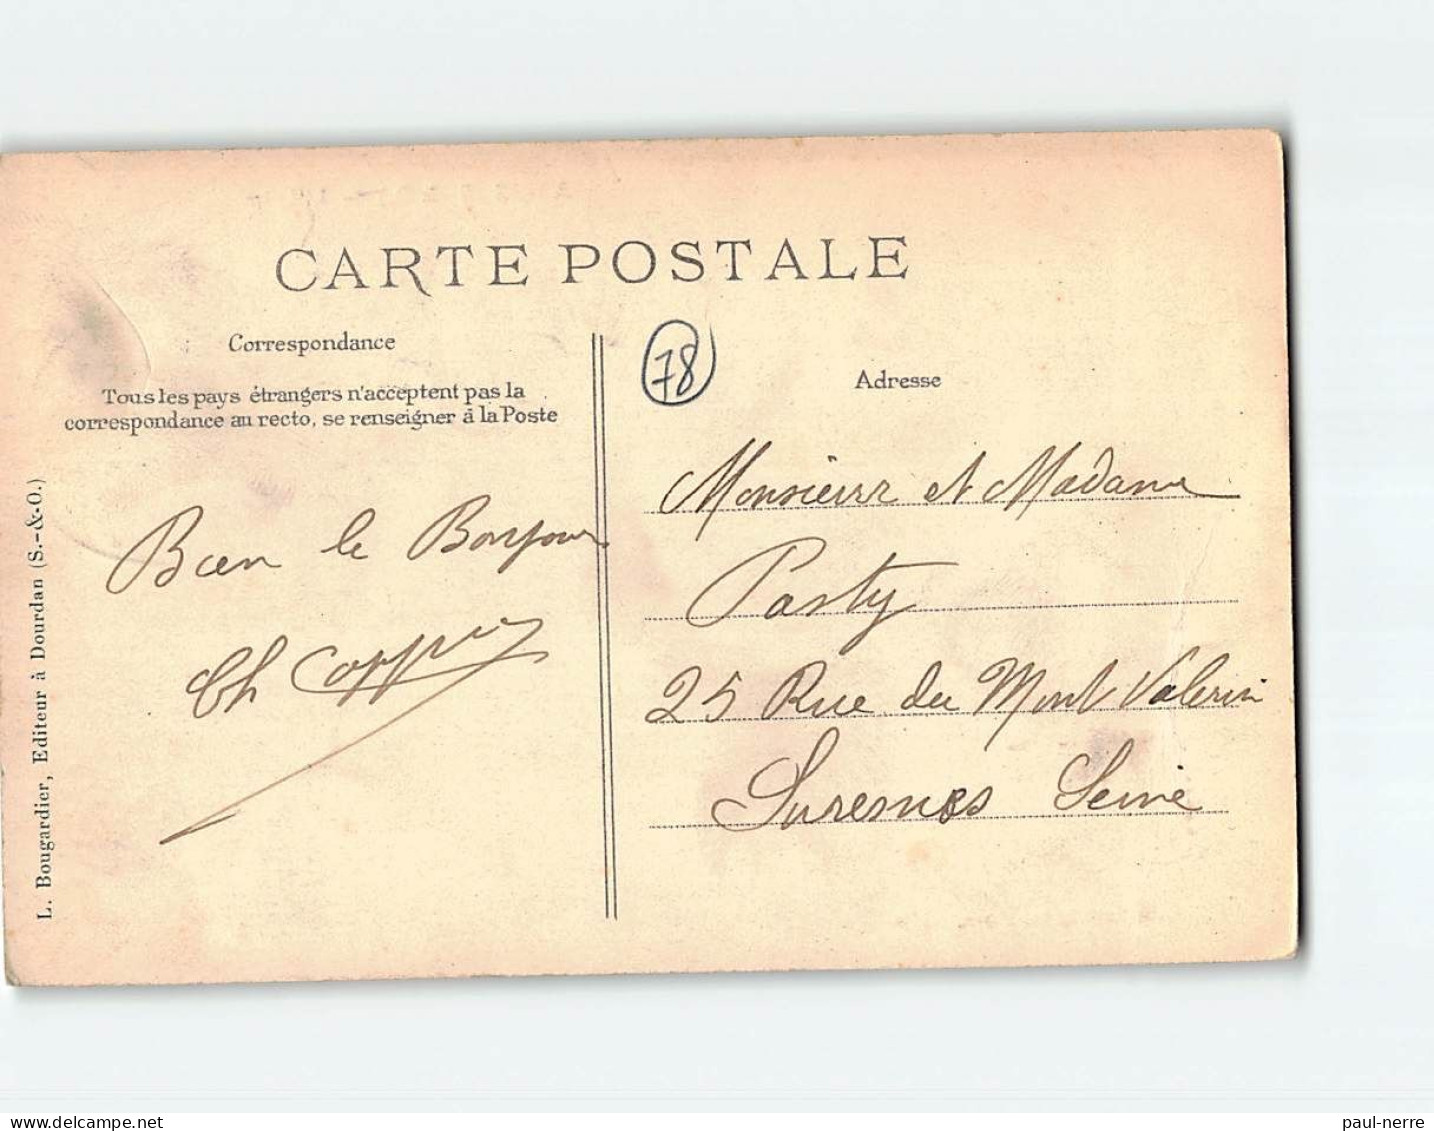 CARTE POSTALE
Correspondance
Tous les pays étrangers n'acceptent pas la
correspondance au recto, se renseigner à la Poste
78
Adresse
Bien le Bonjour
Ch
Monsieur et Madame
Pasty
25 Rue du Mont Valerin
Suresnes Seine
L. Bougardier, Editeur à Dourdan (S.-&-O.)
paul-nerre